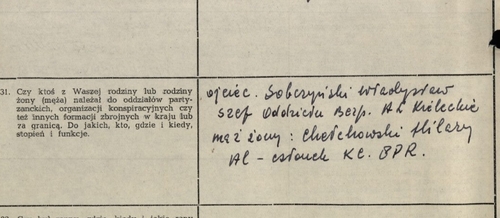 31. Czy ktoś z Waszej rodziny lub rodziny
żony (męża) należał do oddziałów party-
zanckich, organizacji konspiracyjnych czy
też innych formacji zbrojnych w kraju lub
za granicą. Do jakich, kto, gdzie i kiedy,
stopień i funkcje.
ojciec. Sobczyński Władysław
szef Oddziału Bezp. AL Kieleckie
mąż żony: Chełchowski Hilary
AL - członek KC. PPR.